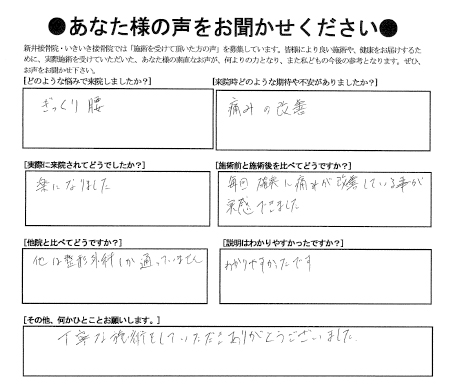 ●あなた様の声をお聞かせください●
新井接骨院・いきいき接骨院では「施術を受けて頂いた方の声」を募集しています。皆様により良い施術や、健康をお届けするた
めに、実際施術を受けていただいた、あなた様の素直なお声が、何よりの力となり、また私どもの今後の参考となります。ぜひ、
お声をお聞かせ下さい。
[どのような悩みで来院しましたか?]
ぎっくり腰
[来院時どのような期待や不安がありましたか?]
痛みの改善
[実際に来院されてどうでしたか?]
楽になりました
[施術前と施術後を比べてどうですか?]
毎回 確実に痛みが改善している事が
実感できました
[他院と比べてどうですか?]
他は整形外科しか通っていません
[説明はわかりやすかったですか?]
わかりやすかったです
[その他、何かひとことお願いします。]
丁寧な施術をしていただきありがとうございました。